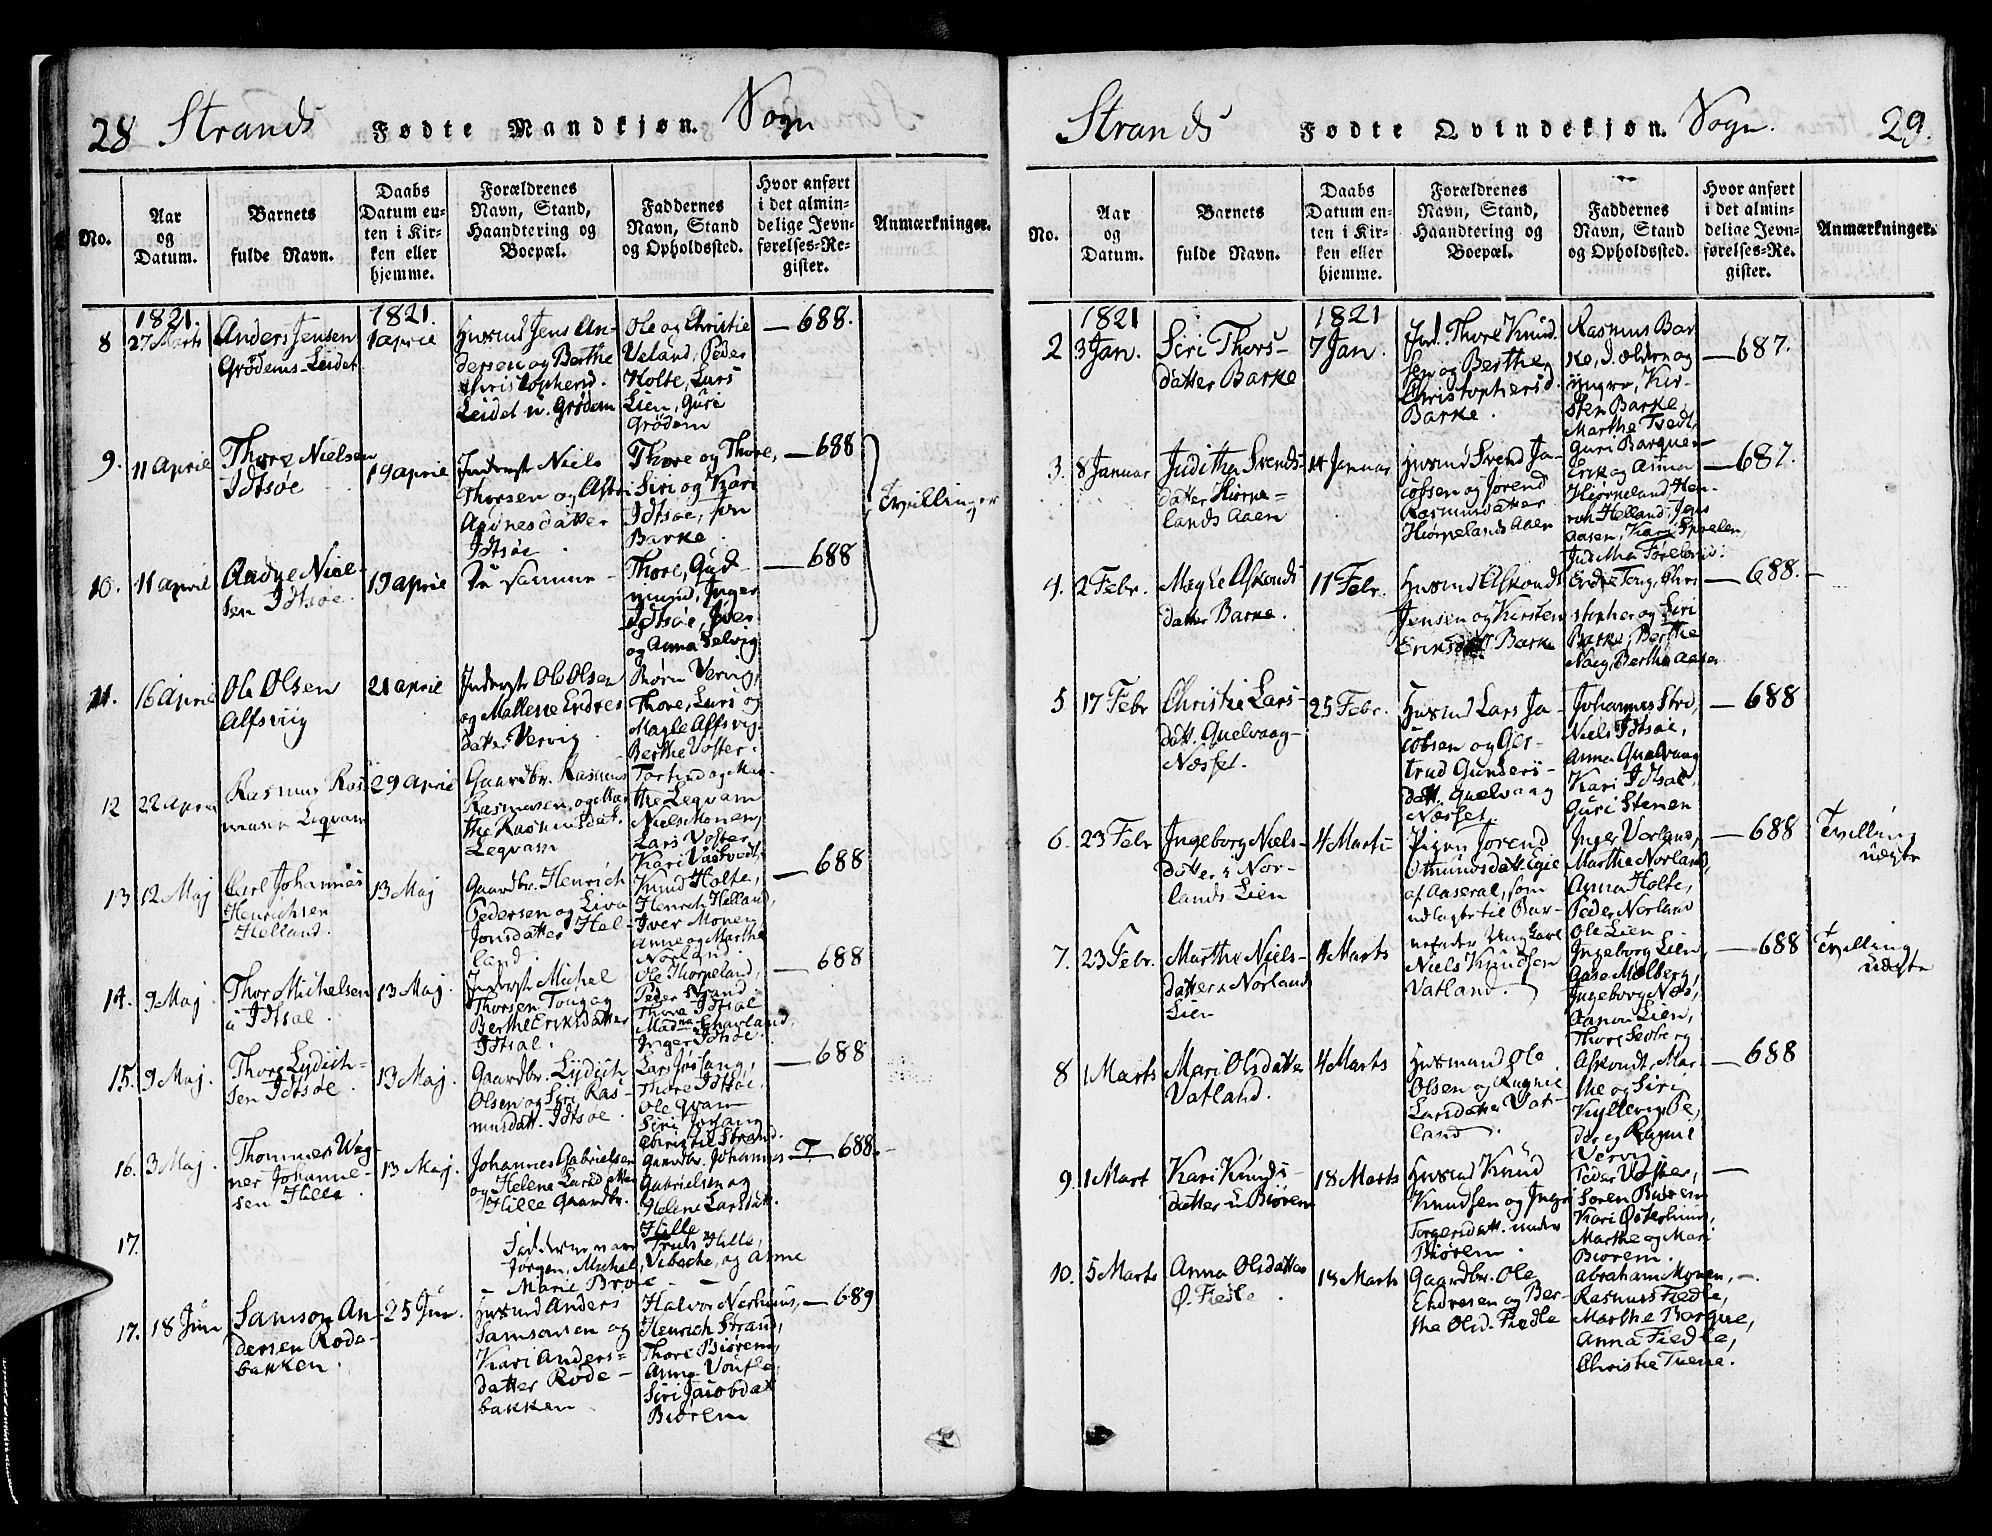 28 Strands Fødte Mandkjøn. Sogn
No.
Aar
og
Datum.
Barnets
fulde Navn.
Daabs
Datum en-
ten i Kir-
ken eller
hjemme.
Forældrenes
Navn, Stand,
Haandtering og
Boepæl.
Faddernes
Navn, Stand
og Opholdssted.
Hvor anført
i det almin-
delige Jevn-
førelses-Re-
gister.
Anmærkninger.
8
1821.
27 Marts
Anders Jensen
Grødems-Leidet
1821.
1 april
Husmd Jens An-
dersen og Berthe
Christopherd.
Leidet u. Grødem
Ole og Christie
Veland, Peder
Holte, Lars
Lien, Guri
Grødem
— 688.
9.
11 april
Thore Nielsen
Idtsøe
19 april
Inderst Niels
Thorsen og
Idtsøe
Thore og Thore,
Siri og Kari
Idtsøe,
Barke.
— 688
Tvillinger
10.
11 april
Niel-
sen Idtsøe.
19 april
samme
Thore, Gud-
mund, Inger
Idtsøe, Iver
og Anna Selvig
— 688
11.
16 april
Ole Olsen
Alfsviig
21 april
Inderst Ole Olsen
og Mallene Endres
datter Vervig
Børn Vervig,
Thore, Lars og
Magle Alfsvig
Berthe Voster.
12
22 april
Rasmus Ras
musen Leqvam
29 april
Gaardbr. Rasmus
Rasmusen og Mar
the Rasmusdat.
Leqvam
Torfind og Mar-
the Leqvam
Niels Monen,
Lars Voster
Kari
13
12 Maj
Carl Johannes
Henrichsen
Helland.
13 Maj
Gaardbr. Henrich
Pedersen og Liva
Jonsdatter Hel-
land.
Knud Holte,
Henrich Helland,
Iver Monen
Anne og Marthe
Norland.
— 688
14.
9 Maj
Thor Michelsen
Idtsøe.
13 Maj.
Inderst Michel
Thorsen Tou og
Berthe Eriksdatter
Idtsøe.
Ole Thorpeland,
Peder Strand
Thore Idtsøe
Inger Idtsøe.
— 688
15.
9 Maj.
Thore Lydich-
sen Idtsøe.
13 Maj.
Gaardbr. Lydich
Olsen og Siri Ras-
musdatt. Idtsøe.
Lars Jøssang,
Thore Idtsøe.
Ole Qvam
Siri Jøssang
Strand.
— 688
16.
3 Maj.
Thommes Weg-
ner Johanne-
sen Hille
13 Maj.
Johannes Gabrielsen
og Helene Larsdatter
Hille Gaardbr.
Gaardbr. Johannes
Gabrielsen og
Helene Larsdatt.
Hille
— 688.
17.
Fadderne vare
Jørgen, Michel,
Truls Hille,
Vibeche, og Anne
Marie Broe
17.
18 Jun
Samson An-
dersen Rode-
bakken.
25 Jun.
Husmd Anders
Samsonsen og
Kari Anders-
datter Rode-
bakken
Halvor Nerhuus,
Henrich Strand,
Thore Biørem,
Anna
Siri Jacobdat
Biørem
— 689
Strands Fødte Qvindekjøn. Sogn. 29.
No.
Aar
og
Datum.
Barnets
fulde Navn.
Daabs
Datum en-
ten i Kir-
ken eller
hjemme.
Forældrenes
Navn, Stand,
Haandtering og
Boepæl.
Faddernes
Navn, Stand
og Opholdssted.
Hvor anført
i det almin-
delige Jevn-
førelses-Re-
gister.
Anmærkninger.
2
1821
3 Jan.
Siri Thors-
datter Barke
1821
7 Jan.
Thore Knud
sen og Berthe
Christophersd.
Barke.
Rasmus Bar
ke, d. ældre og
yngre, Kir-
sten Barke,
Marthe Tvedt,
— 687.
3.
8 Januar
Juditha Svends
datter Hiørpe-
lands Aaen
14 Januar
Husmd Svend Ja-
cobsen og Jorend
Rasmusdatter
Hiørpelands Aaen
Guri Barque
Erik og Anna
Hiørpeland, Hen-
rich Helland, Jens
Aasen, Kari
Juditha
— 687.
4.
2 Febr.
Magle Askonds
datter Barke.
11 Febr.
Husmd Askond
Jensen og Kirsten
Barke
Endre Tou, Chri
stopher og Siri
Barke, Berthe
Naeg, Berthe Aasen
— 688. —
5
17 Febr
Christie Lars-
datt. Quelvaag-
Næsset.
25 Febr.
Husmd Lars Ja-
cobsen og Ger-
trud Gunders-
datt. Quelvaag
Næsset.
Johannes Strd,
Niels Idtsøe,
Anna Quelvaag
Kari Idtsøe
Guri Stenen
— 688
6.
23 Febr
Ingeborg Niels-
datter Nor-
lands Lien
4 Marts
Pigen Jorend
Ottmundsdatt.
af Aaseral, som
udlagde til Bar-
nefader Ungkarl
Niels Knudsen
Vatland.
Inger Norland,
Marthe Norland,
Anna Holte,
Peder Norland
Ole Lien
— 688
Tvilling
uægte
7.
23 Febr.
Marthe Niels-
datter Norlands
Lien
4 Marts
Ingeborg Lien,
Aase Molberg,
Ingeborg Næs,
Aanon Lien,
Thore Sedberg
— 688
Tvilling,
uægte
8
1 Marts
Mari Olsdatter
Vatland.
4 Marts
Husmand Ole
Olsen og Ragnil
Larsdatter Vat-
land.
Askondt, Mar-
the og Siri
Kyllevig, Pe,
der og Ragnil
Vervig.
— 688
9.
1 Mart
Kari Knuds-
datter u Biørem
18 Marts
Husmd Knud
Knudsen og Ingri
Torgersdatt. under
Biørem.
Peder Voster,
Soren Biørem
Kari Østerhuus,
Marthe og Mari
Biørem.
—
10.
5 Marts
Anna Olsdatter
Ø. Fiedle.
18 Marts
Gaardbr. Ole
Endresen og Ber-
the Olsd. Fiedle
Abraham Monen,
Rasmus Fiedle,
Marthe Barque,
Anna Fiedle,
Christie Tuene.
—.